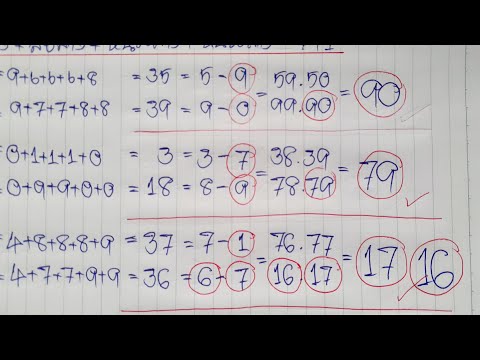 =9+6+6+6+8 = 35 = 5-9 = 59.50 = 90
=9+7+7+8+8 = 39 = 9-0 = 99.90
=0+1+1+1+0 = 3 = 3-7 = 38.39 = 79
=0+9+9+0+0 = 18 = 8-9 = 78.79
=4+8+8+8+9 = 37 = 7-1 = 76.77 = 17 16
=4+7+7+9+9 = 36 = 6-7 = 16.17